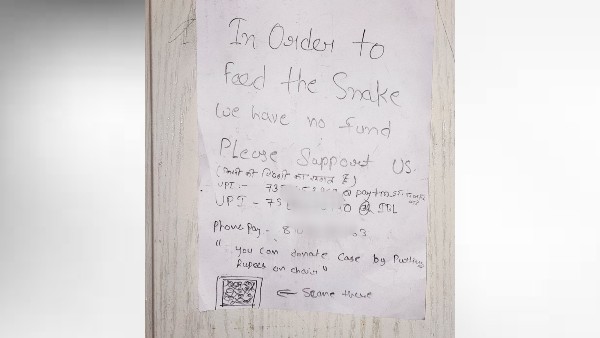 In Order to
Feed the Snake
we have no fund
Please Support US.
UPI :- 73
UPI - 75 0 @ IBL
Phone Pay - 8 3
" you can donate case by Putting
Rupees on chair "
← Scane there